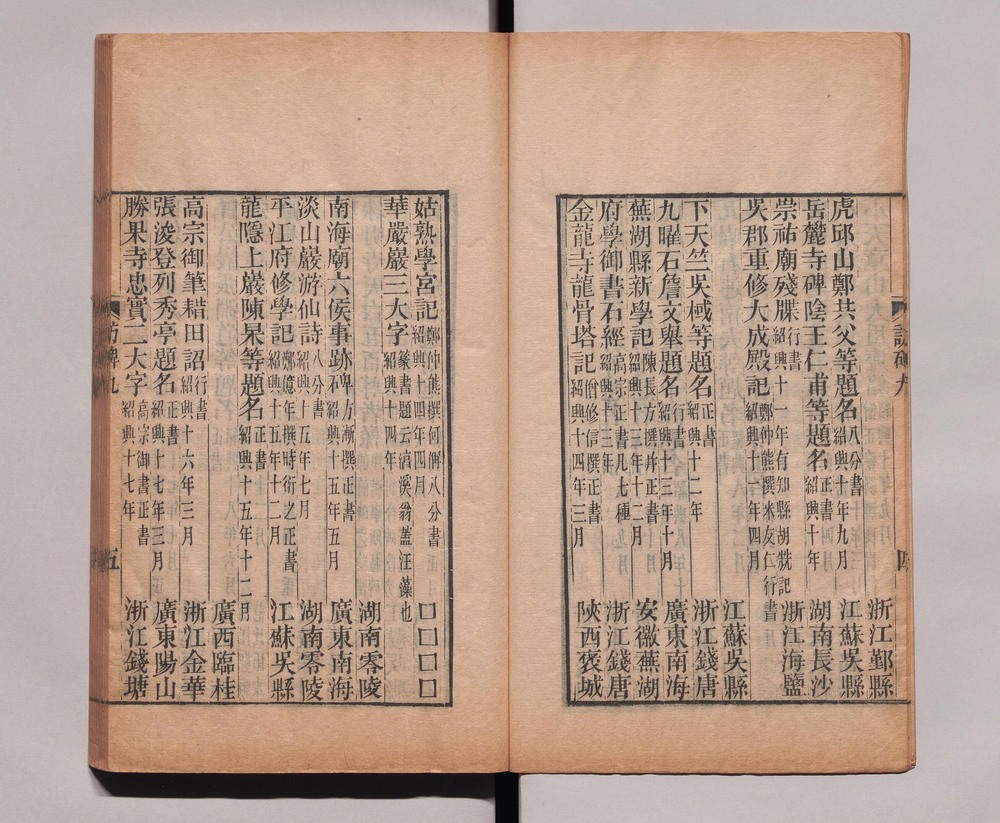 浙江鄞縣
虎邱山鄭共父等題名 八分書 紹興十年九月 江蘇吳縣
岳麓寺碑陰王仁甫等題名 正書 紹興十年 湖南長沙
崇祐廟殘牒 行書 紹興十一年有知縣胡兟記 浙江海鹽
吳郡重修大成殿記 鄭仲熊撰米友仁行書 紹興十一年四月 江蘇吳縣
下天竺吳棫等題名 正書 紹興十二年 浙江錢唐
九曜石詹文舉題名 行書 紹興十三年十月 廣東南海
蕪湖縣新學記 陳長方撰并正書 紹興十三年十二月 安徽蕪湖
府學御書石經 高宗正書凡七種 紹興十三年 浙江錢唐
金龍寺龍骨塔記 僧修信撰正書 紹興十四年三月 陝西褒城
姑熟學宮記 鄭仲熊撰何偁八分書 紹興十四年四月 □□□□
華嚴巖三大字 篆書題云滈溪翁蓋汪藻也 紹興十四年 湖南零陵
南海廟六侯事跡碑 方漸撰正書 紹興十五年五月 廣東南海
淡山巖游仙詩 八分書 紹興十五年七月 湖南零陵
平江府修學記 鄭億年撰時衍之正書 紹興十五年十二月 江蘇吳縣
龍隱上巖陳杲等題名 正書 紹興十五年十二月 廣西臨桂
高宗御筆耤田詔 行書 紹興十六年三月 浙江金華
張浚登列秀亭題名 正書 紹興十七年三月 廣東陽山
勝果寺忠實二大字 高宗御書正書 紹興十七年 浙江錢塘
訪碑九 五